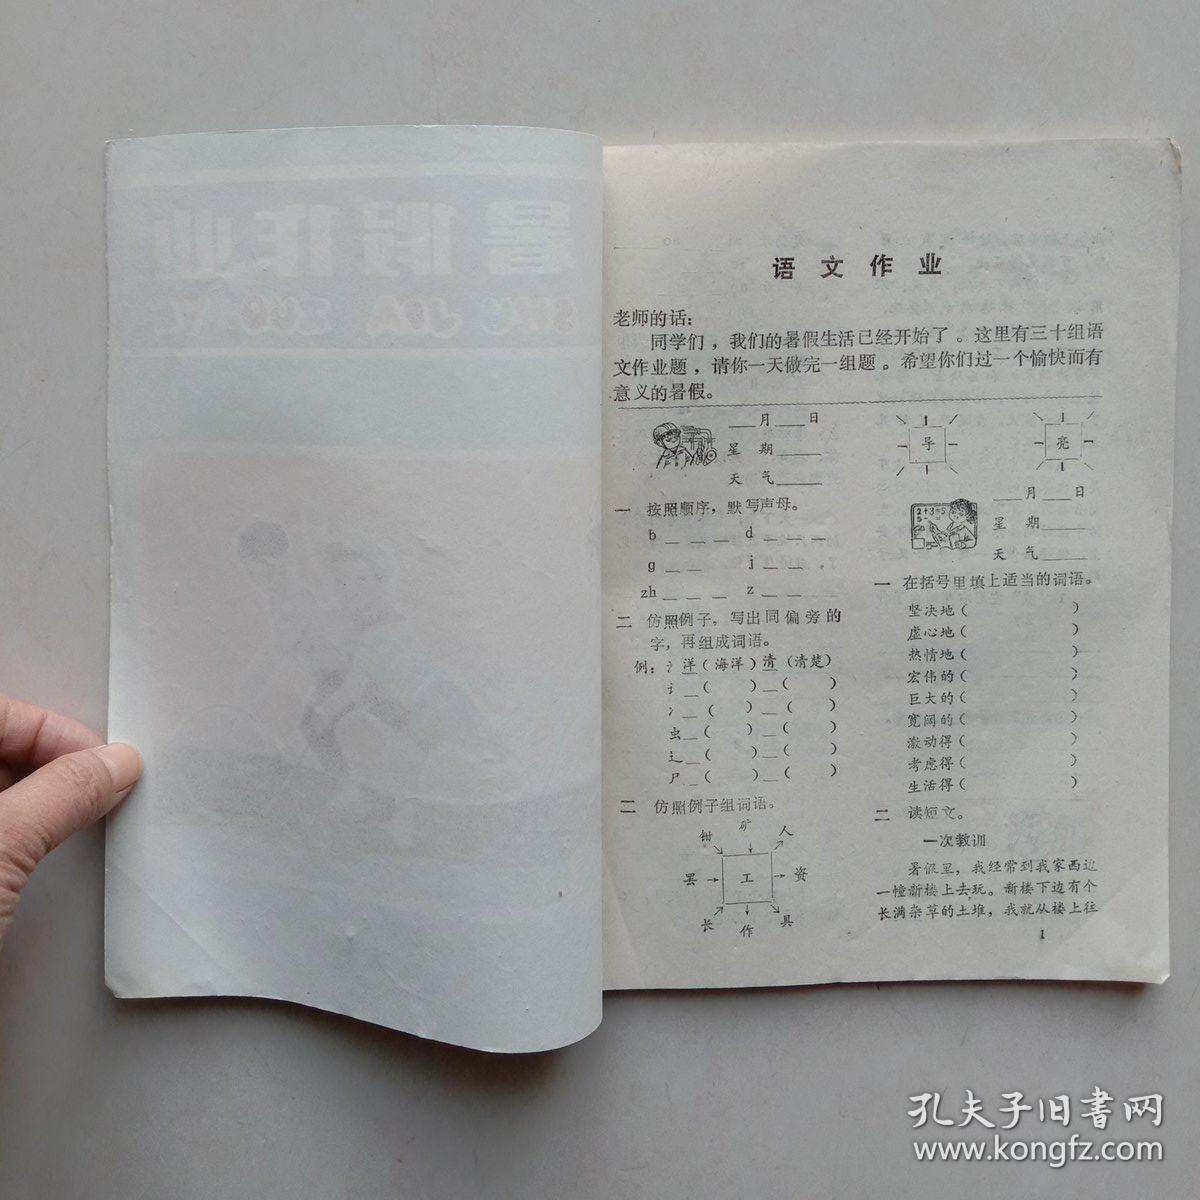 暑假作业
SHU JIA ZUO YE
语文作业
老师的话：
同学们，我们的暑假生活已经开始了。这里有三十组语
文作业题，请你一天做完一组题。希望你们过一个愉快而有
意义的暑假。
___月___日
星 期____
天 气____
一 按照顺序，默写声母。
b _ _ _ d _ _ _
g _ _ j _ _
zh _ _ _ z _ _
二 仿照例子，写出同偏旁的
字，再组成词语。
例：氵洋（海洋）清（清楚）
讠_（ ）_（ ）
冫_（ ）_（ ）
虫_（ ）_（ ）
辶_（ ）_（ ）
尸_（ ）_（ ）
三 仿照例子组词语。
钳 矿 人
罢 工 资
长 作 具
导 亮
___月___日
2+3=5
5-
星 期____
天 气____
一 在括号里填上适当的词语。
坚决地（ ）
虚心地（ ）
热情地（ ）
宏伟的（ ）
巨大的（ ）
宽阔的（ ）
激动得（ ）
考虑得（ ）
生活得（ ）
二 读短文。
一次教训
暑假里，我经常到我家西边
一幢新楼上去玩。新楼下边有个
长满杂草的土堆，我就从楼上往
1
孔夫子旧书网
www.kongfz.com